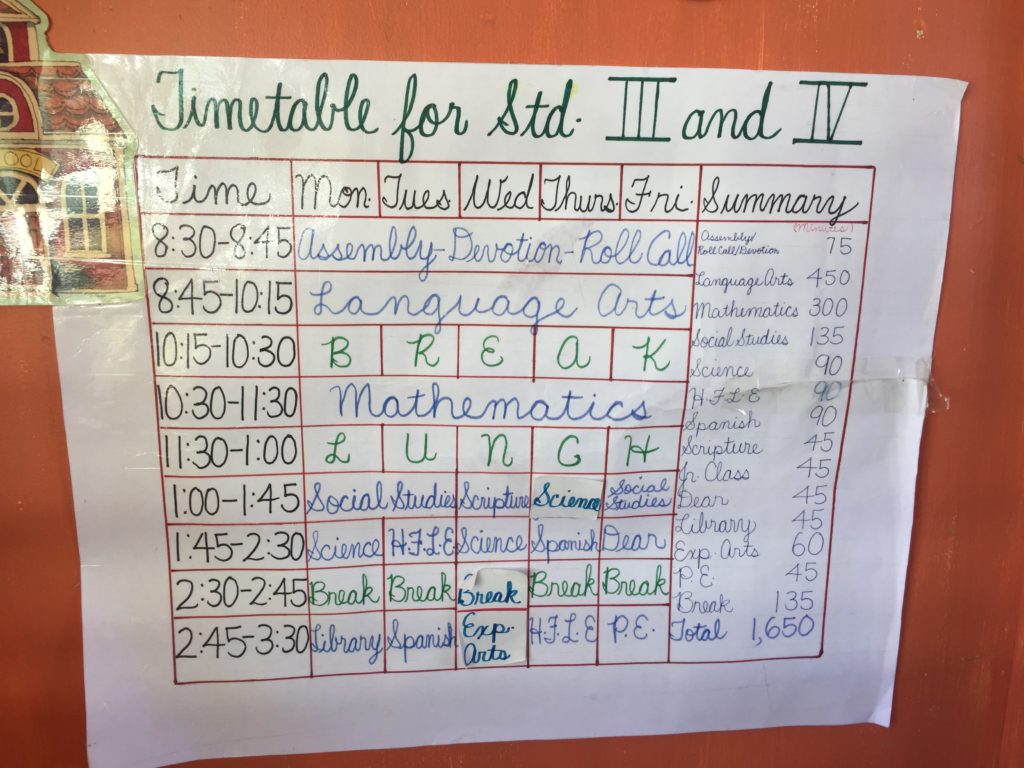 Timetable for Std. III and IV
Time Mon. Tues Wed Thurs. Fri. Summary
(Minutes)
8:30-8:45 Assembly-Devotion-Roll Call
Assembly/
Roll Call/Devotion 75
8:45-10:15 Language Arts
Language Arts 450
Mathematics 300
10:15-10:30 B R E A K
Social Studies 135
Science 90
10:30-11:30 Mathematics
H.F.L.E 90
Spanish 90
11:30-1:00 L U N C H
Scripture 45
Jr. Class 45
1:00-1:45 Social Studies Scripture Science Social Studies
Dear 45
Library 45
1:45-2:30 Science H.F.L.E Science Spanish Dear
Exp. Arts 60
2:30-2:45 Break Break Break Break Break
P.E. 45
Break 135
2:45-3:30 Library Spanish Exp. Arts H.F.L.E P.E.
Total 1,650
OOL